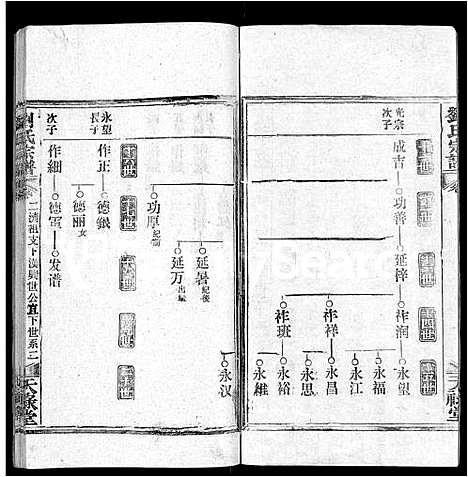 劉氏宗譜
光宗
次子
成吉
功善
延梓
祚润
永望
永福
永江
祚祥
永昌
永思
祚班
永裕
永維
天祿堂
永汉
延暑
紀後
延万
出继
功厚
永望
長子
作正
德銀
德丽
女
次子
作細
德軍
发谱
劉氏宗譜
二濟祖支下漢興世公直下世系二
天祿堂